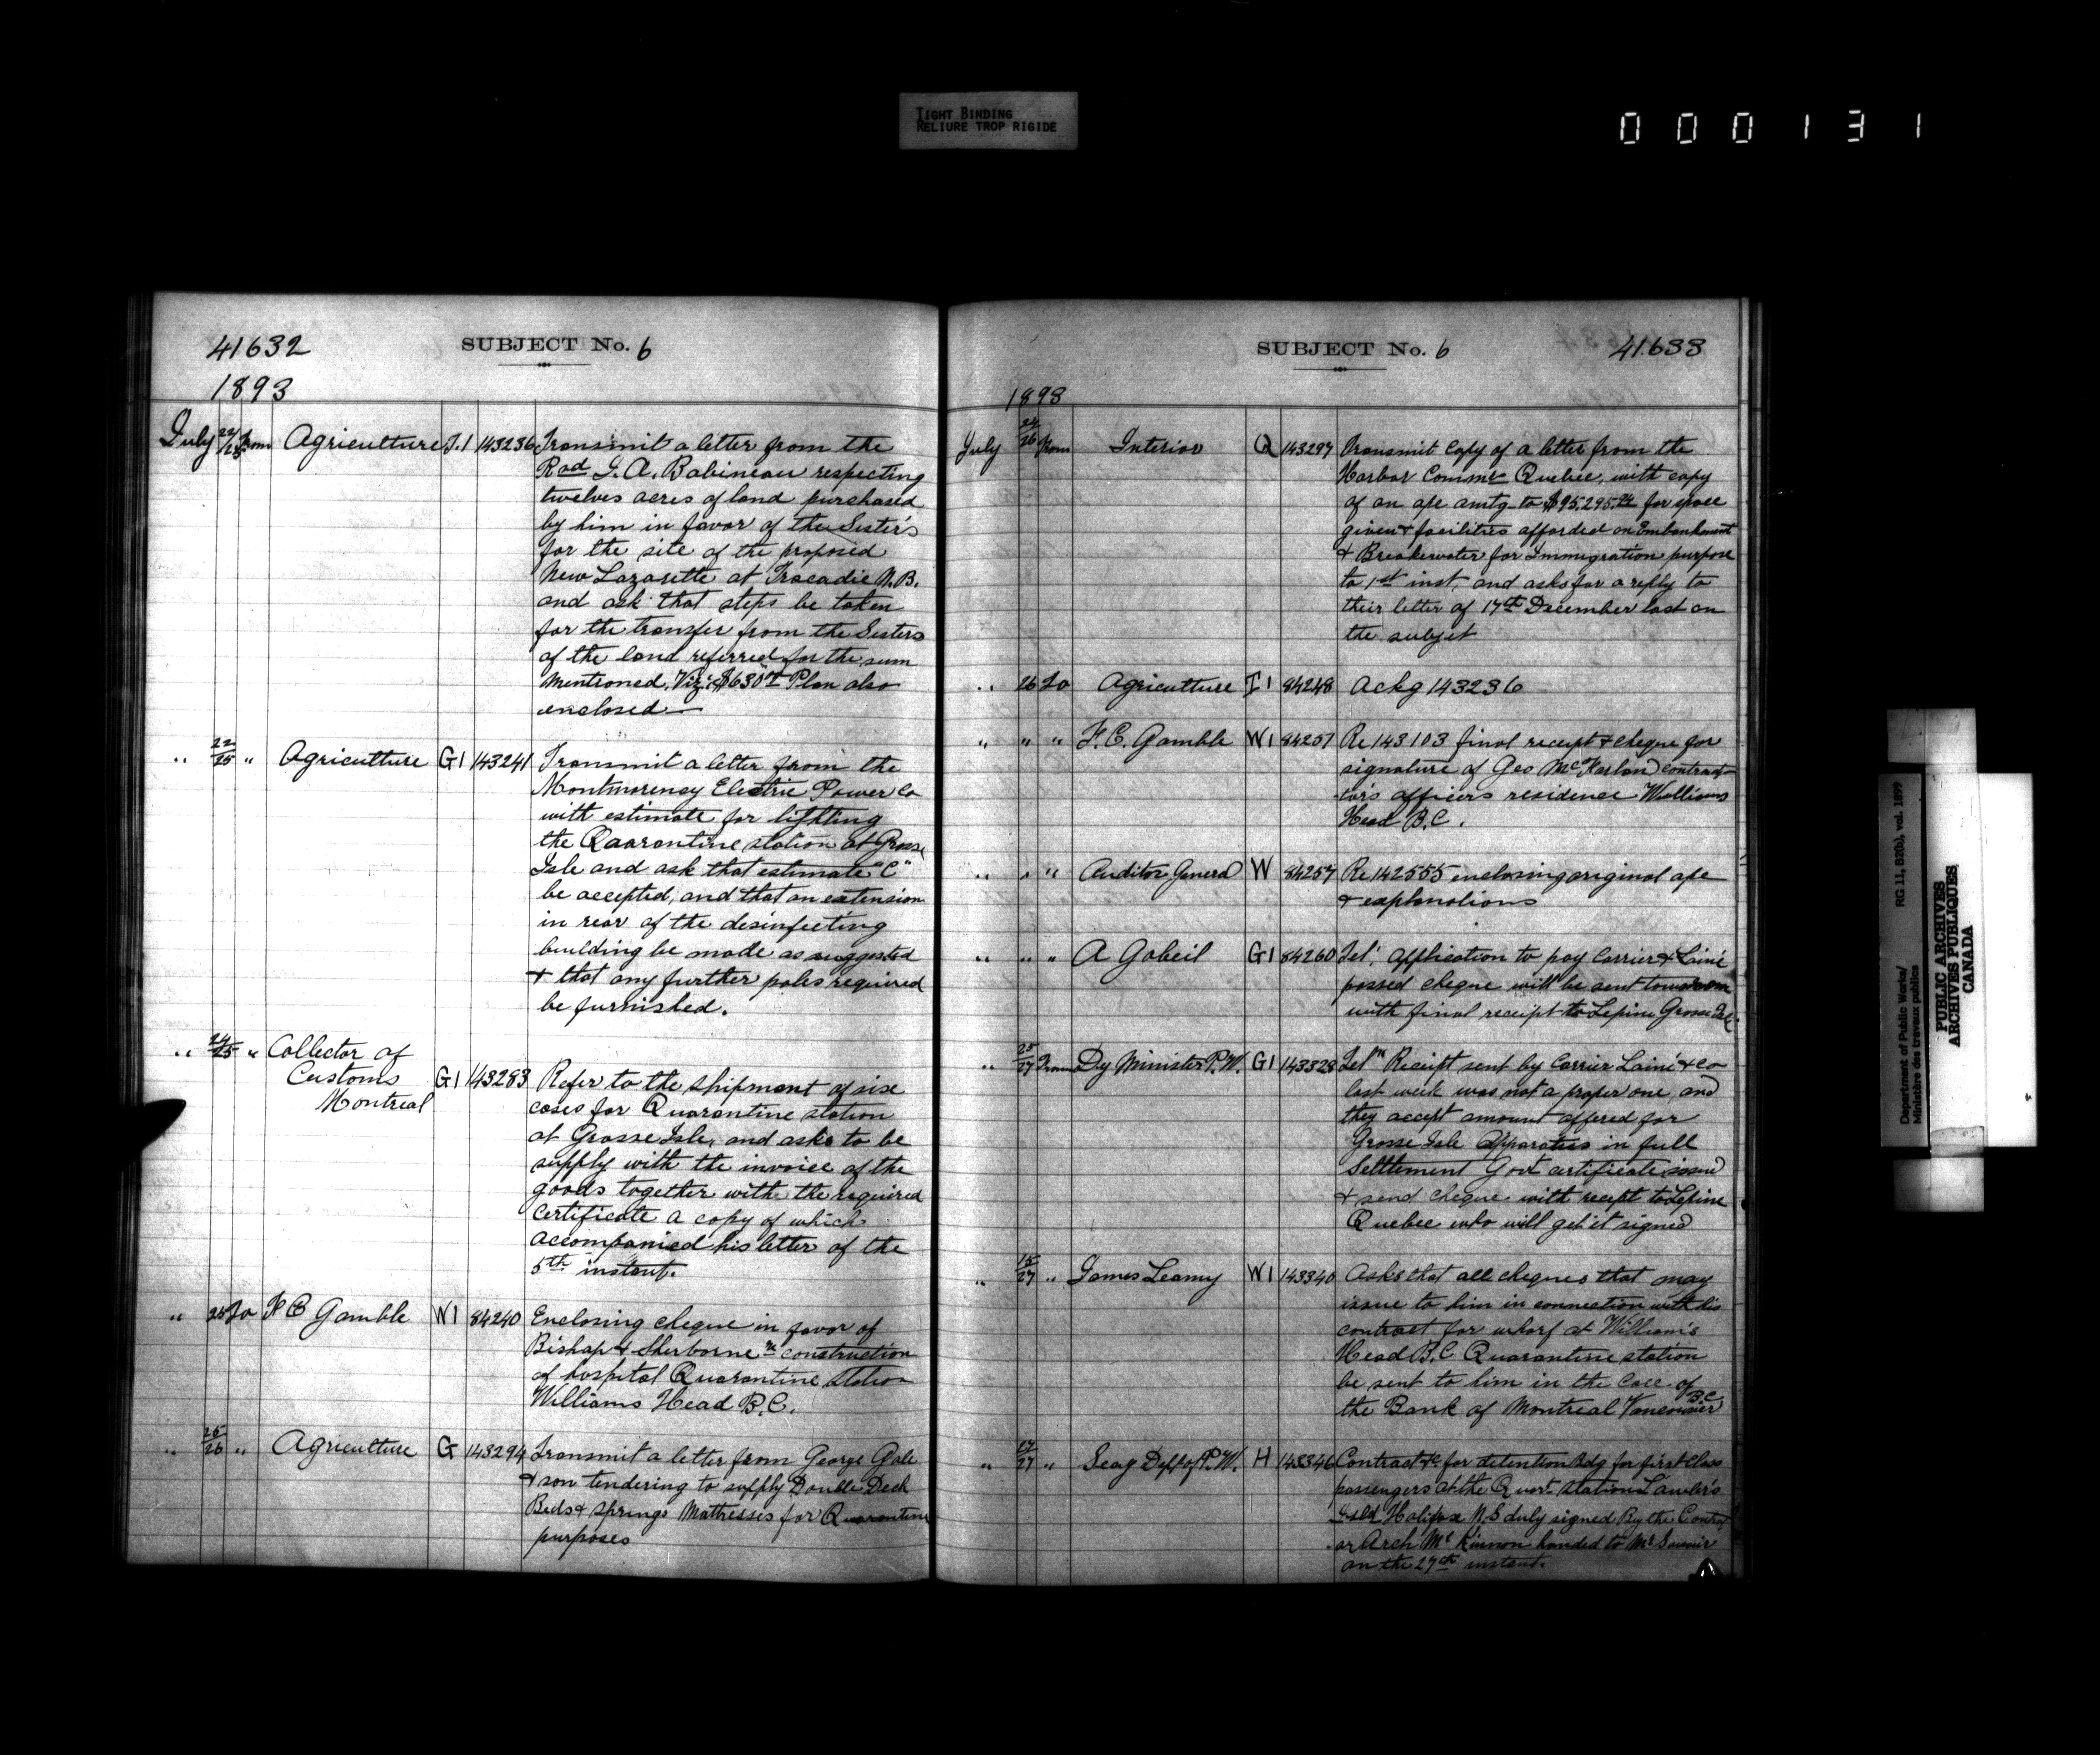 TIGHT BINDING
RELIURE TROP RIGIDE
000131
41632
SUBJECT No. 6
1893
July 22/25 from Agriculture T.1 143236 Transmit a letter from the
Rvd J. A. Babineau respecting
twelves acres of land purchased
by him in favor of the Sister's
for the site of the proposed
New Lazarette at Tracadie N.B.
and ask that steps be taken
for the transfer from the Sisters
of the land referred for the sum
mentioned, Viz: $630 Plan also
enclosed—
" 22/25 " Agriculture G1 143241 Transmit a letter from the
Montmorency Electric Power Co
with estimate for lighting
the Quarantine station at Grosse
Isle and ask that estimate "C"
be accepted, and that an extension
in rear of the desinfecting
building be made as suggested
+ that any further poles required
be furnished.
" 24/25 " Collector of
Customs
Montreal G1 143283 Refer to the shipment of six
cases for Quarantine station
at Grosse Isle, and asks to be
supply with the invoice of the
goods together with the required
certificate a copy of which
accompanied his letter of the
5th instant.
" 25 To F C Gamble W1 84240 Enclosing cheque in favor of
Bishop & Sherborne re construction
of hospital Quarantine station
Williams Head B.C.
" 25/26 " Agriculture G 143294 Transmit a letter from George Gale
+ son tendering to supply Double Deck
Beds + springs Mattresses for Quarantine
purposes
SUBJECT No. 6
41633
1893
July 24/26 from Interior Q 143297 Transmit copy of a letter from the
Harbor Commrs Quebec, with copy
of an a/c amtg to $95,295.24 for space
given + facilities afforded on Embankment
+ Breakwater for Immigration purpose
to 1st inst, and asks for a reply to
their letter of 17th December last on
the subjet
" 26 To Agriculture T1 84248 Ackg 143236
" " " F. C. Gamble W1 84251 Re 143103 final receipt + cheque for
signature of Geo McFarlan contract-
tor's officers residence Williams
Head B.C.
" " " Auditor General W 84257 Re 142555 enclosing original a/c
+ explanations
" " " A Gobeil G1 84260 Tel; application to pay Carrier + Lainé
passed cheque will be sent tomorrow
with final receipt to Lepine Grosse Isle.
" 25/27 From Dy Minister P.W. G1 143328 Telm Receipt sent by Carrier Lainé + co
last week was not a proper one and
they accept amount offered for
Grosse Isle Apparatus in full
Settlement Govt certificate issued
+ send cheque with recept to Lepine
Quebec who will get it signed
" 15/27 " James Leamy W1 143340 Asks that all cheques that may
issue to him in connection with his
contract for wharf at William's
Head B.C Quarantine station
be sent to him in the care of
the Bank of Montreal Vancouver B.C.
" 17/27 " Secy Dept of P.W. H 143346 Contract &c for detention Bdg for first class
passengers at the Quart. station Lawler's
Isld Halifax N.S duly signed By the Contract-
or Arch McKinnon handed to Mr
on the 27th instant.
Department of Public Works/ RG 11, B2(b), vol. 1899
Ministère des travaux publics
PUBLIC ARCHIVES
ARCHIVES PUBLIQUES
CANADA